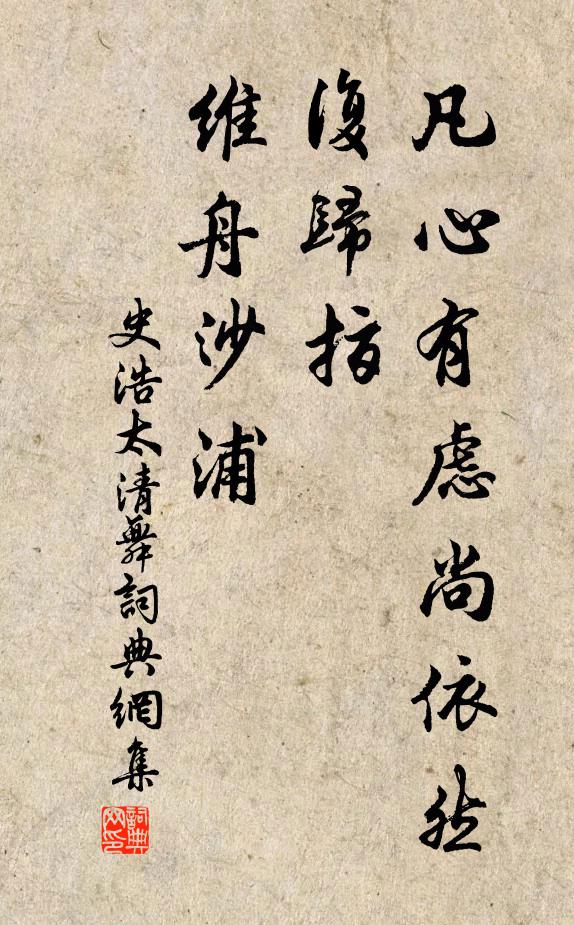 凡心有慮尚依然
復歸指
維舟沙浦
史浩太清舞詞典網集
詞典网印